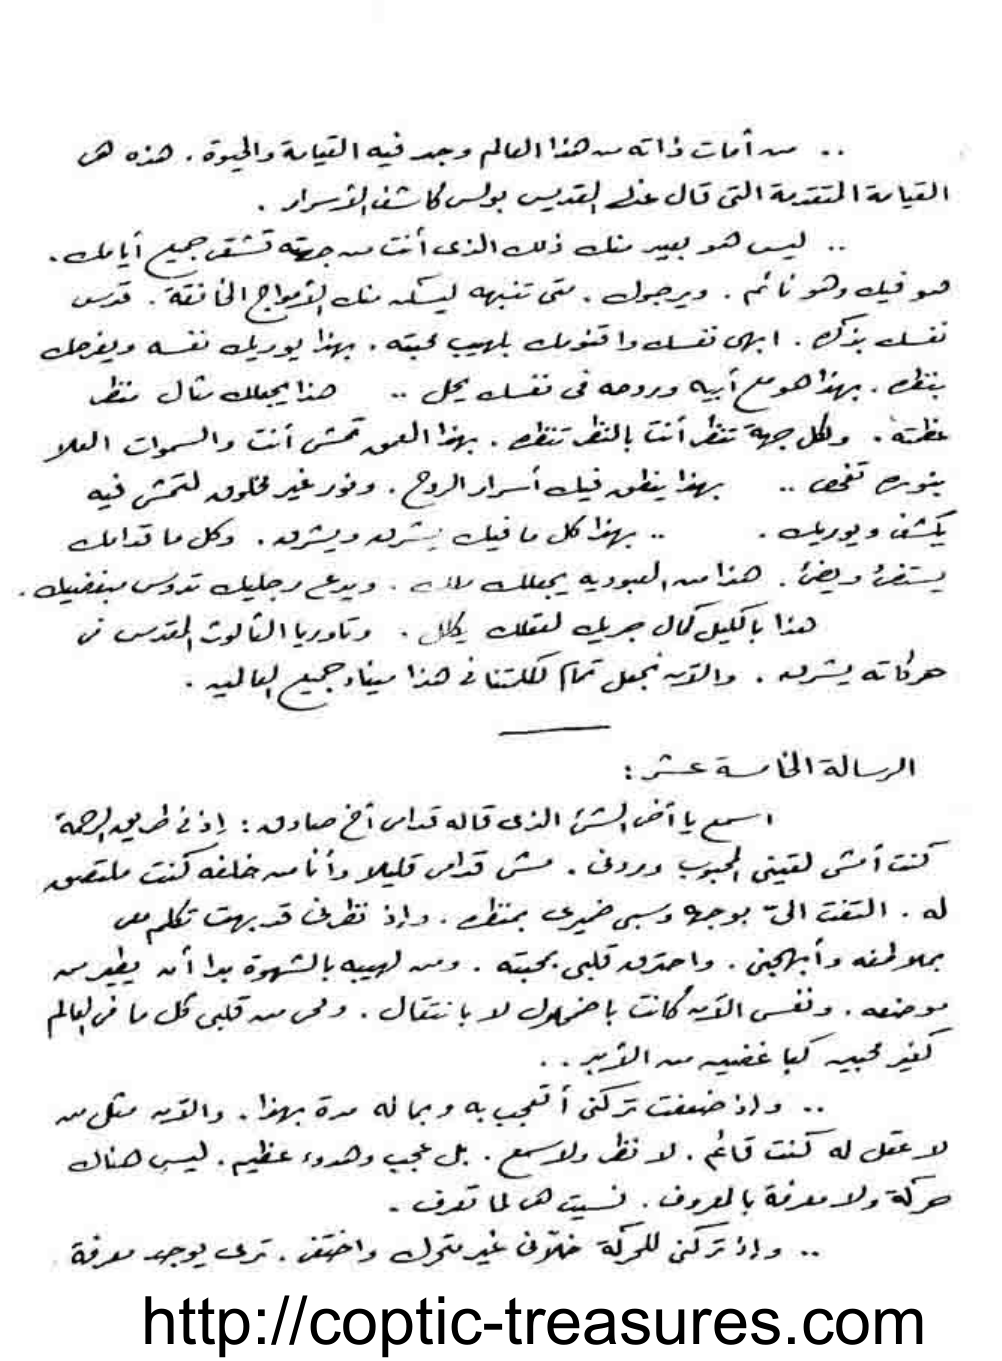 .. من أمات ذاته من هذا العالم وجد فيه القيامة والحيوة . هذه هى
القيامة المتقدمة التى قال عنها القديس بولس كاشف الأسرار .
.. ليس هو بعيد منك ذلك الذى أنت من جهته تشقى جميع أيامك .
هو فيك وهو نائم . ويرجوك . متى تنبهه ليسكن منك الأمواج الخانقة . قدس
نفسك بذكره . ابهى نفسك واقنومك بلهيب محبته . بهذا يوريك نفسه ويفرحك
بنظره . بهذا هو مع أبيه وروحه فى نفسك يحل .. هذا يجعلك مثال منظر
عظمته . ولكل جهة تنظر أنت بالنظر تنظره . بهذا العمق تمشى أنت والسموات العلا
بنوره تفحص .. بهذا ينطق فيك أسرار الروح . ونور غير مخلوق لتمشى فيه
يكشف ويوريك . .. بهذا كل ما فيك يشرق ويشرق . وكل ما قدامك
يستضئ ويضئ . هذا من العبودية يجعلك ملاك . ويدع رجليك تدوس مبغضيك .
هذا باكليل كمال جريك لعقلك يكلل . وتاوريا الثالوث المقدس فى
حركاته يشرق . والآن نجعل تمام لكلمتنا فى هذا ميناء جميع العالمين .
الرسالة الخامسة عشر :
اسمع يا أخى الشئ الذى قاله قدامى أخ صادق : إذ فى طريق الرحمة
كنت أمشى لقينى المحبوب وردنى . مشى قدامى قليلا وأنا من خلفه كنت ملتصق
له . التفت الىّ بوجهه وسبى ضميرى بمنظره . وإذ نظرنى قد بهت تكلم معى
بملاطفه وأبهجنى . واحترق قلبى بمحبته . ومن لهيبه بالشهوة بدا أن يطير من
موضعه . ونفسى الآن كانت باضمحلال لا بانتقال . ومحى من قلبى كل ما فى العالم
كغير محبيه كباغضيه من الأبد . .
.. وإذ ضعفت تركنى أتعجب به وبما له مدة بهذا . والآن مثل من
لا عقل له كنت قائم . لا نظر ولا سمع . بل عجب وهدوء عظيم . ليس هناك
حركة ولا معرفة بالمعروف . نسيت هى لما تعرف .
.. وإذ تركنى للحركة خلّانى غير متحرك واختفى . ترى يوجد معرفة
http://coptic-treasures.com